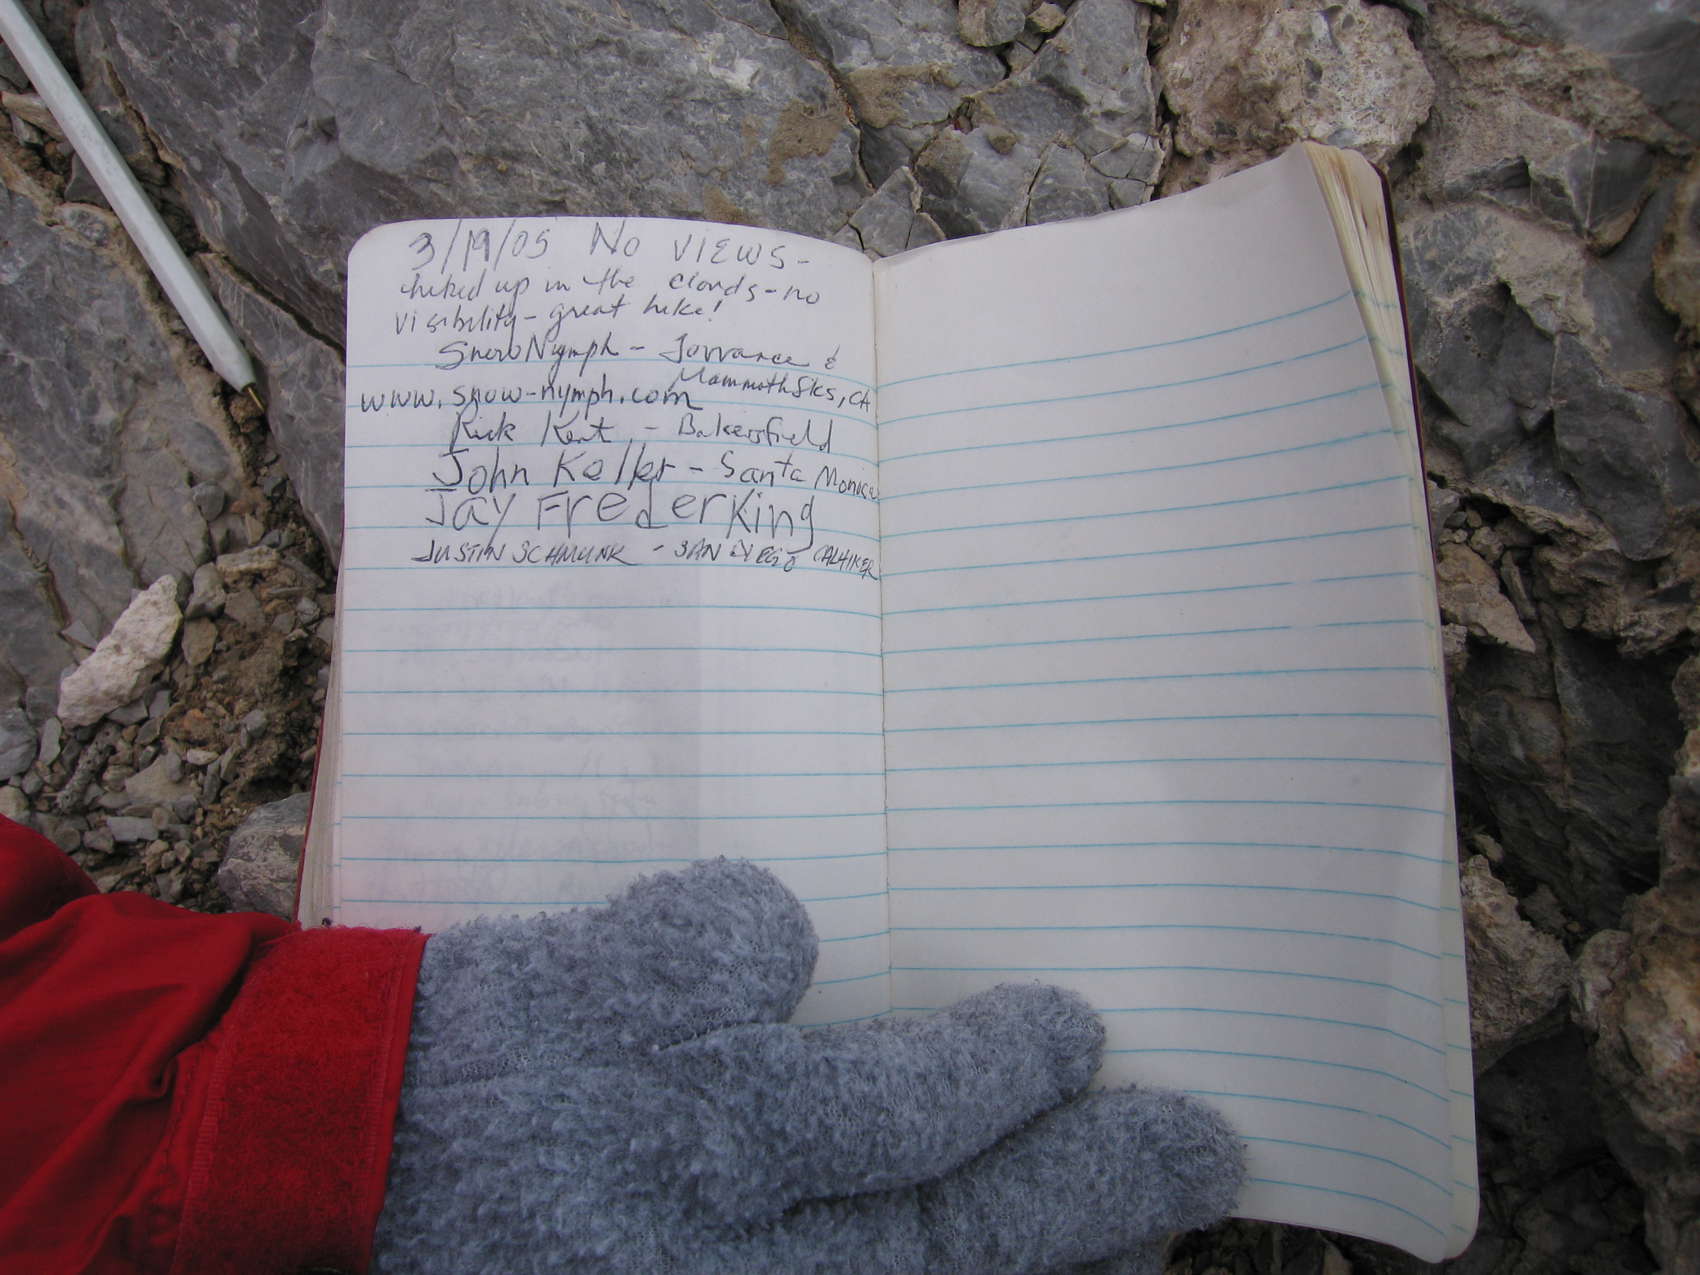 3/19/05 No VIEWS -
hiked up in the clouds - no
visibility - great hike!
SnowNymph - Torrance &
Mammoth Lks, CA
www.snow-nymph.com
Rick Kent - Bakersfield
John Keller - Santa Monica
Jay Frederking
JUSTIN SCHMUNK - SAN DIEGO CALHIKER